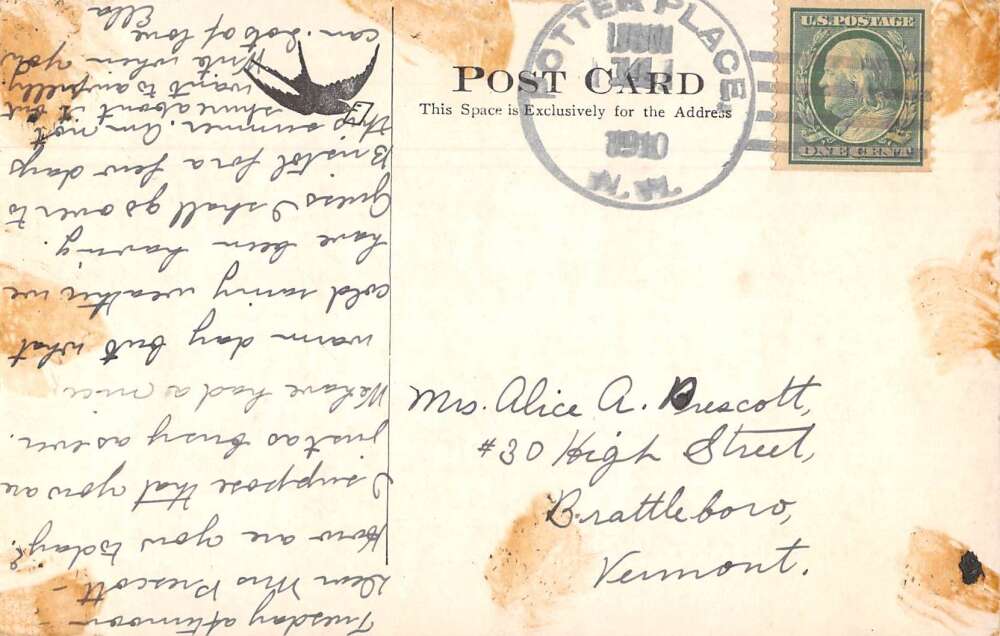 POST CARD
This Space is Exclusively for the Address
POTTER PLACE,
1910
N.H.
U.S. POSTAGE
ONE CENT
Mrs. Alice A. Prescott,
#30 High Street,
Brattleboro,
Vermont.
Tuesday afternoon -
Dear Mrs Prescott -
How are you today?
I suppose that you are
just as busy as ever.
We have had a nice
warm day but what
cold rainy weather we
have been having.
Guess I shall go over to
Bristol for a few days
this summer. Am not
sure about it but
want to awfully.
Write when you
can. Lots of love
Ella